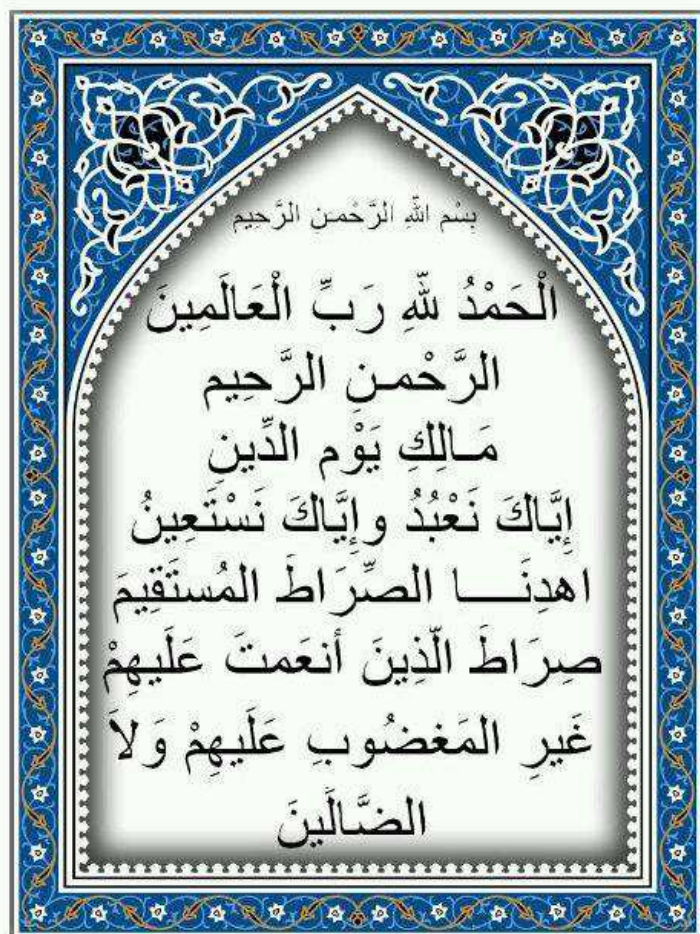 بِسْمِ اللّهِ الرَّحْمـنِ الرَّحِيمِ
الْحَمْدُ للّهِ رَبِّ الْعَالَمِينَ
الرَّحْمـنِ الرَّحِيم
مَـالِكِ يَوْم الدِّينِ
إِيَّاكَ نَعْبُدُ وإِيَّاكَ نَسْتَعِينُ
اهدِنَــــا الصِّرَاطَ المُستَقِيمَ
صِرَاطَ الَّذِينَ أنعَمتَ عَلَيهِمْ
غَيرِ المَغضُوبِ عَلَيهِمْ وَلاَ
الضَّالَينَ